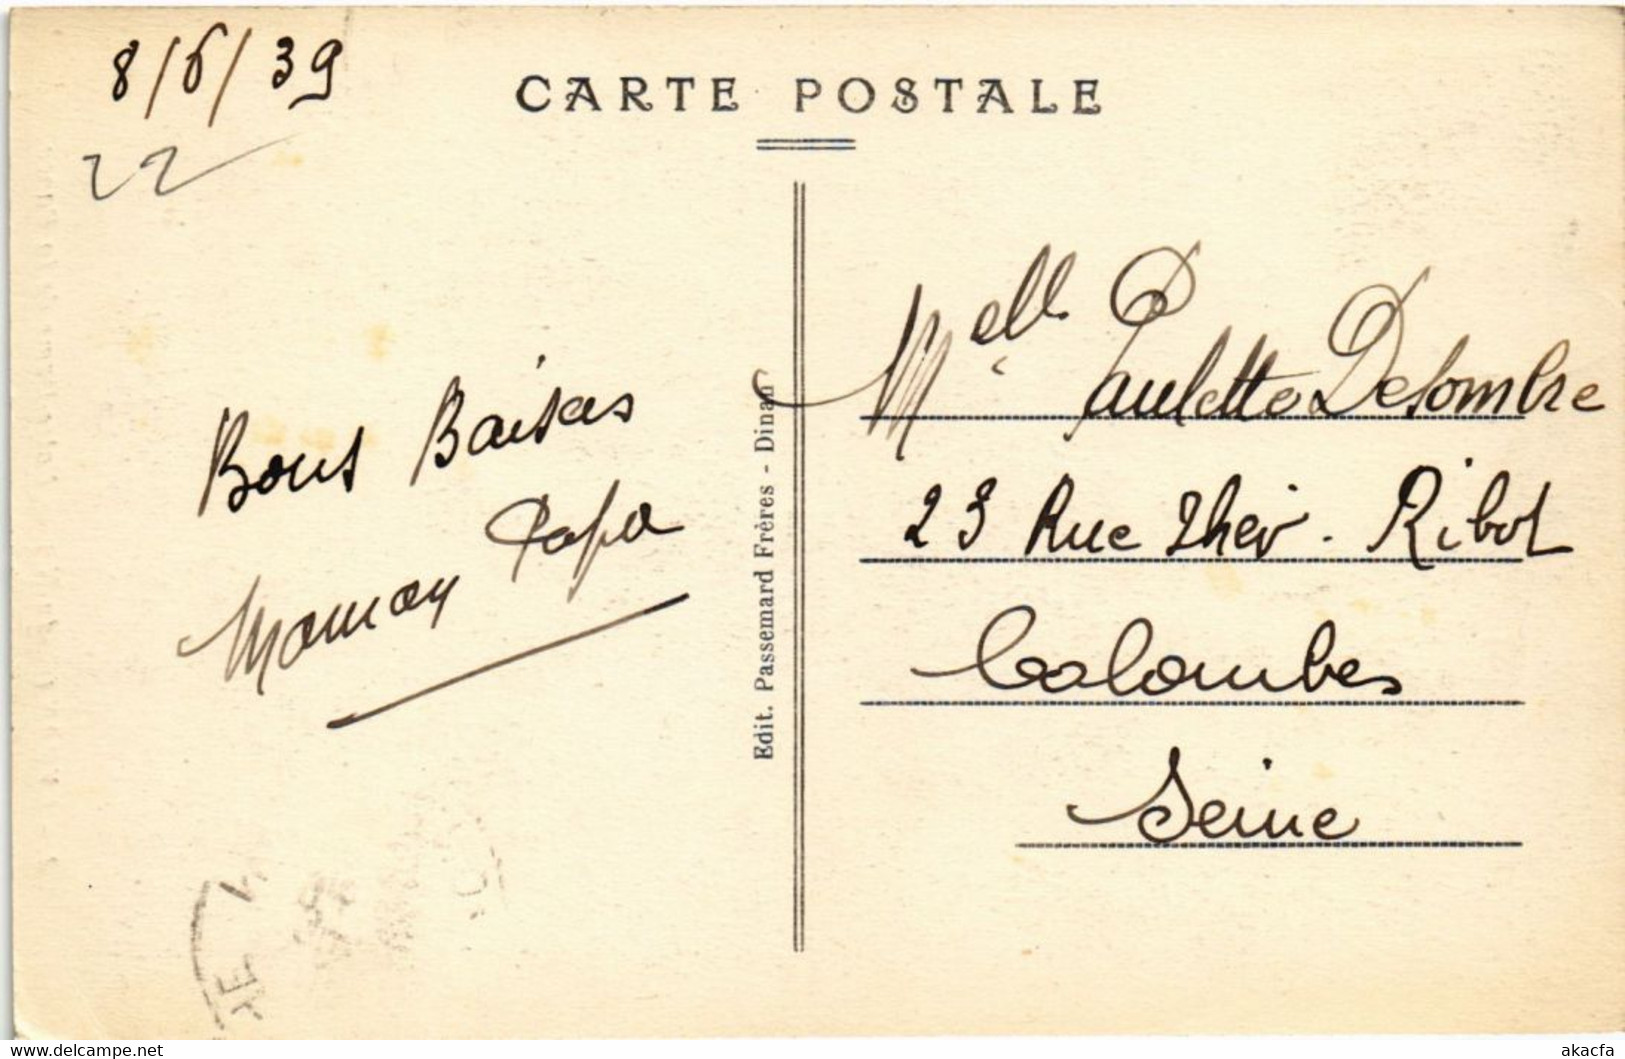 8/6/39
22
CARTE POSTALE
Bons Baisers
Papa
Maman
Edit. Passemard Frères - Dinan
Melle Paulette Delombre
23 Rue Thev. Ribot
Colombes
Seine
akacfa
www.delcampe.net